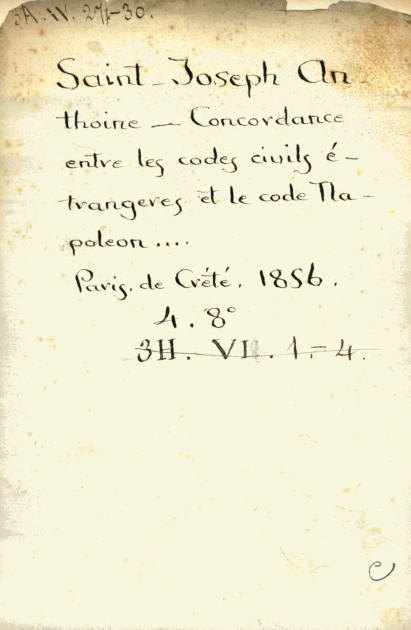 3A. W. 27-30.
Saint-Joseph An-
thoine — Concordance
entre les codes civils é-
trangeres et le code Na-
poleon....
Paris. de Crété. 1856.
4. 8°
3H. VI. 1.-4.